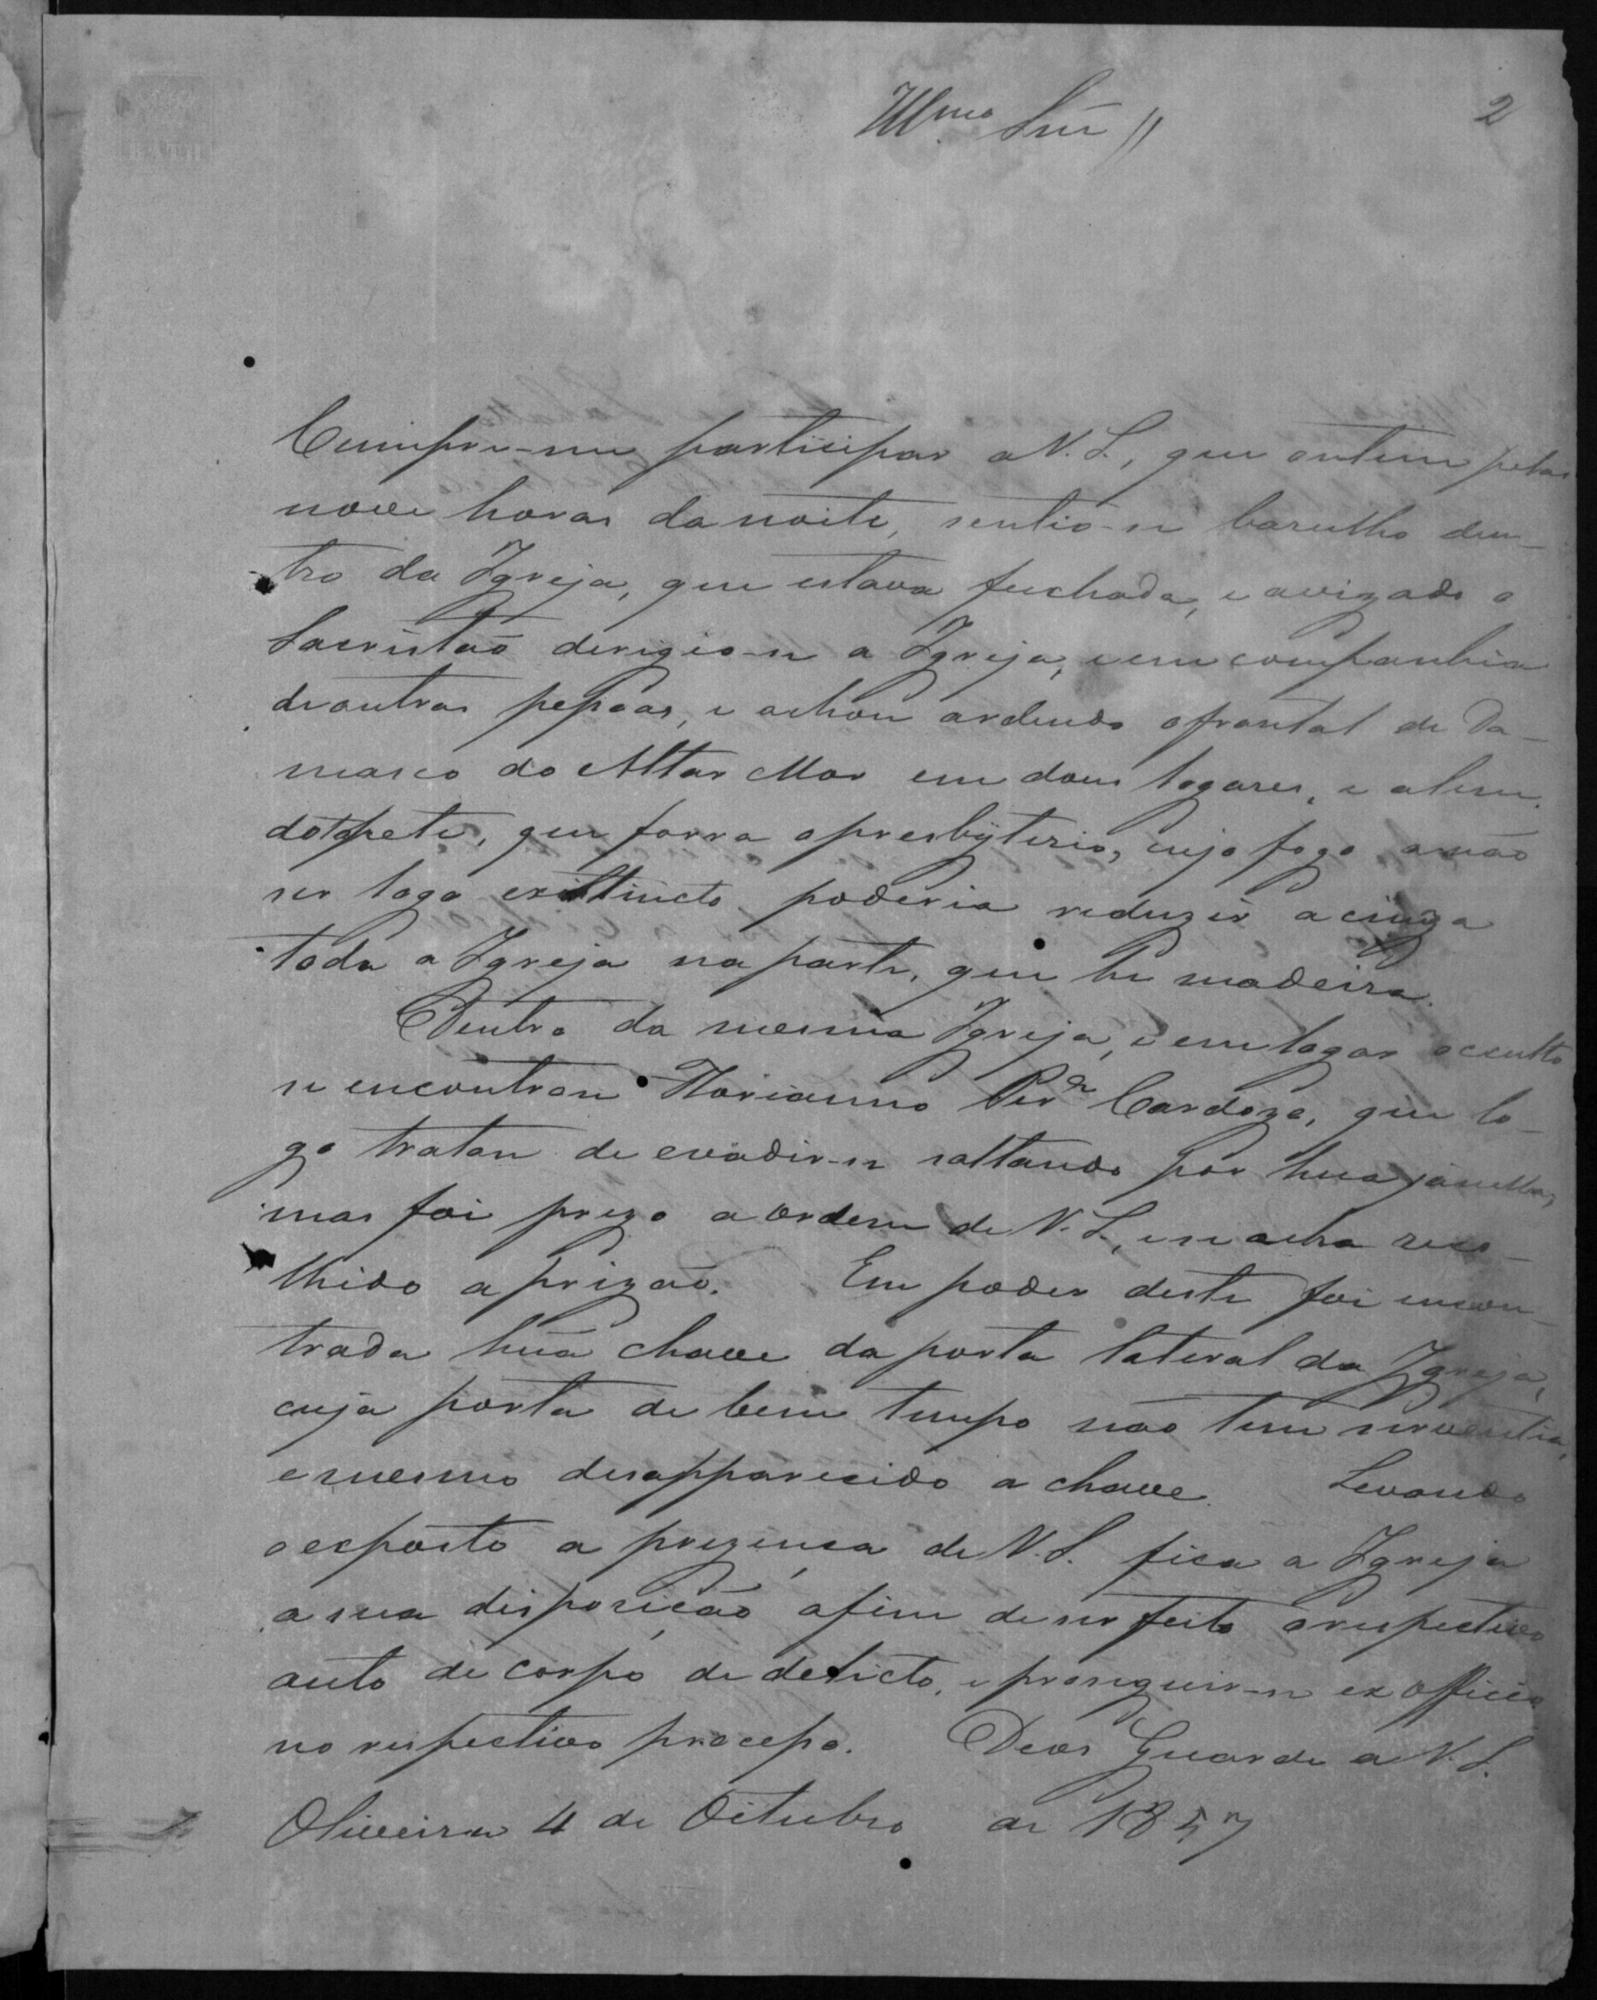 2
Illmo Snr //
Cumpre-me partisipar a V. S., que ontem pelas
nove horas da noite, sentio-se barulho den-
tro da Igreja, que estava fuchada, e avizado o
Sacristaõ derigio-se a Igreja, e em companhia
de outras pessoas, e achou ardendo o frontal de Da-
masco do Altar Mor em dous logares, e alem
do tapete, que forra o presbÿterio, cujo fogo a não
ser logo exttincto poderia reduzir a cinza
toda a Igreja na parte, que he madeira.
Dentro da mesma Igreja, e em logar occulto
se encontrou Florianno Per.ª Cardozo, que lo-
go tratou de evadir-se saltando por hua janella,
mas foi prezo a ordem de V. S., e se acha reco-
lhido a prizaõ. Em poder deste foi encon-
trada hũa chave da porta lateral da Igreja,
cuja porta de bem tempo não tem serventia,
e mesmo desapparecido a chave. Levando
o exposto a prezença de V. S. fica a Igreja
a sua disposiçaõ afim de ser feito o respectivo
auto de corpo de delicto, e proseguir-se ex officio
no respectivo processo. Deos Guarde a V. S.
Oliveira 4 de Oitubro de 1857